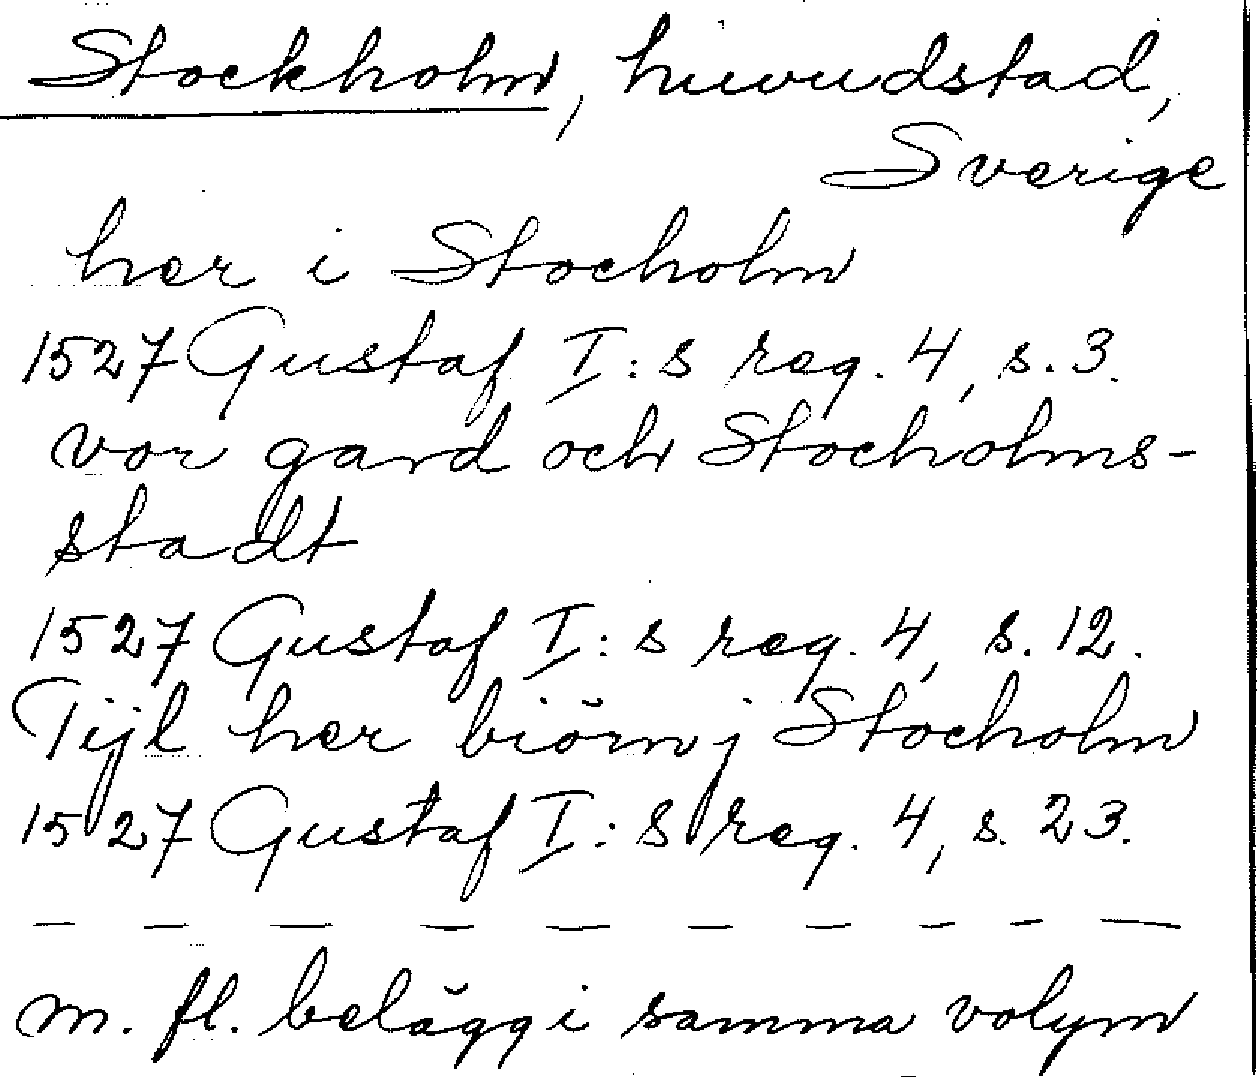 Stockholm, huvudstad,
Sverige
her i Stocholm
1527 Gustaf I:s reg. 4, s. 3.
vor gard och Stocholms-
stadt
1527 Gustaf I:s reg. 4, s. 12.
Tijl her biörn j Stocholm
1527 Gustaf I:s reg. 4, s. 23.
— — — — — — — — — —
m. fl. belägg i samma volym